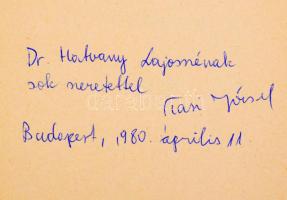 Dr. Hatvany Lajosnénak
sok szeretettel
József
Budapest, 1980. április 11.